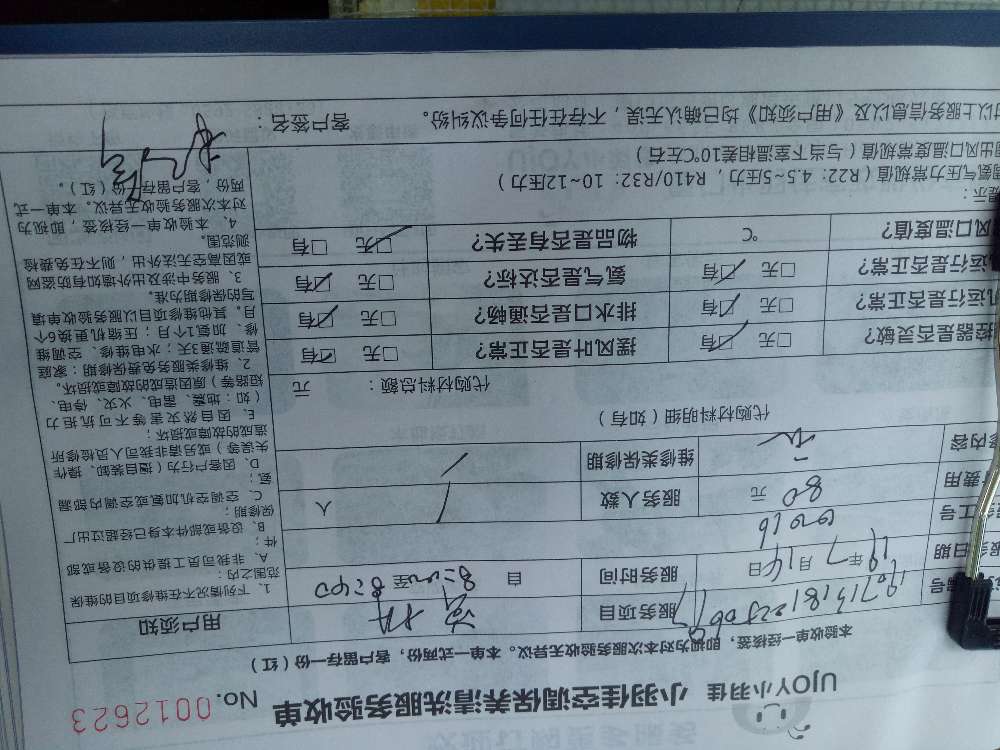 UJOY小羽佳 小羽佳空调保养清洗服务验收单 No. 0012623
本验收单一经核签，即视为对本次服务验收无异议。本单一式两份，客户留存一份（红）
服务项目
用户须知
服务日期 19年7月14日
服务时间 自8:00至8:40
工号 00016
费用 80元
服务人数 1人
修内容
维修类保修期 /
代购材料明细（如有）
代购材料总额： 元
控器是否灵敏？ □无 ☑有
摆风叶是否正常？ □无 ☑有
机运行是否正常？ □无 ☑有
排水口是否通畅？ □无 ☑有
机运行是否正常？ □无 ☑有
氨气是否达标？ □无 ☑有
风口温度值？ ℃
物品是否有丢失？ ☑无 □有
提示：
调氨气压力常规值（R22：4.5~5压力，R410/R32：10~12压力）
调出风口温度常规值（与当下室温相差10℃左右）
对以上服务信息以及《用户须知》均已确认无误，不存在任何争议纠纷。 客户签名：
1、下列情况不在维修项目的维保
范围之内：
A、非我司员工提供的设备或部
件；
B、设备或部件本身已经超过出厂
保修期；
C、空调空机加氨或空调内部漏
氨；
D、因客户行为（擅自装卸、操作
失误等）或另请非我司人员检修所
造成的故障或损坏；
E、因自然灾害等不可抗拒力
（如：地震、雷电、火灾、停电、
短路等）原因造成的故障或损坏。
2、维修类服务免费保修期：家庭
管道疏通3天；水电维修、空调维
修、加氨1个月；压缩机更换6个
月。其他维修项目以服务验收单填
写的保修期为准。
3、服务中涉及出外墙如有防盗网
或因高空无法外出，则不在免费检
测范围。
4、本验收单一经核签，即视为
对本次服务验收无异议。本单一式
两份，客户留存一份（红）。